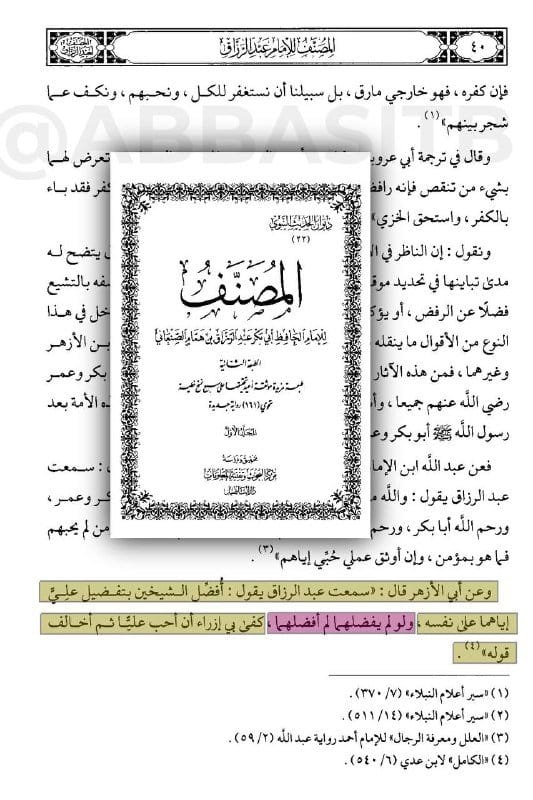 ٤٠
المصنف للإمام عبد الرزاق
فإن كفره ، فهو خارجي مارق ، بل سبيلنا أن نستغفر للكل ، ونحبهم ، ونكف عما
شجر بينهم»(١) .
@ABBASITB
وقال في ترجمة أبي عروبة
تعرض لهما
بشيء من تنقص فإنه رافضي
كفر فقد باء
بالكفر ، واستحق الخزي»
ونقول : إن الناظر في
يتضح له
مدى تباينها في تحديد موقف
بالتشيع
فضلًا عن الرفض ، أو يؤكد
في هذا
النوع من الأقوال ما ينقله
ابن الأزهر
وغيرهما ، فمن هذه الآثار
بكر وعمر
رضي الله عنهم جميعا ، وأن
هذه الأمة بعد
رسول الله ﷺ أبو بكر
فعن عبد الله ابن الإمام
: سمعت
عبد الرزاق يقول : والله ما
بكر وعمر ،
ورحم الله أبا بكر ، ورحم
من لم يحبهم
فما هو بمؤمن ، وإن أوثق عملي حُبِّي إياهم»(٣) .
وعن أبي الأزهر قال : «سمعت عبد الرزاق يقول : أُفضِّل الشيخين بتفضيل عليٍّ
إياهما على نفسه ، ولو لم يفضلهما لم أفضلهما ، كفى بي إزراء أن أحب عليًّا ثم أخالف
قوله»(٤) .
(١) «سير أعلام النبلاء» (٧/ ٣٧٠) .
(٢) «سير أعلام النبلاء» (١٤/ ٥١١) .
(٣) «العلل ومعرفة الرجال» للإمام أحمد رواية عبد الله (٢/ ٥٩) .
(٤) «الكامل» لابن عدي (٦/ ٥٤٠) .
ديوان الحديث النبوي
(٢٢)
المصنف
للإمام الحافظ أبي بكر عبد الرزاق بن همام الصنعاني
الطبعة الثانية
طبعة مزيدة موثقة أعيد تحقيقها على سبع نسخ خطية
تحوي (١٦١) رواية جديدة
المجلد الأول
تحقيق ودراسة
مركز البحوث وتقنية المعلومات
دار التأصيل